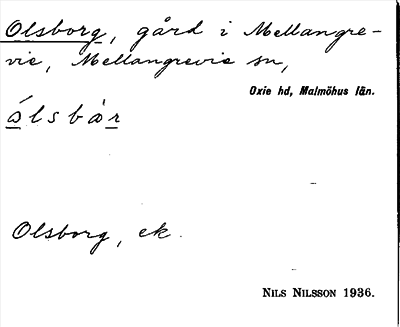 Olsborg, gård i Mellangre-
vie, Mellangrevie sn,
Oxie hd, Malmöhus län.
álsbàr
Olsborg, ek.
NILS NILSSON 1936.